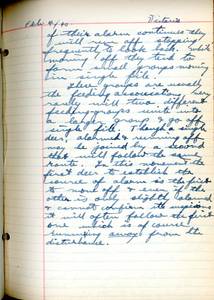 Pictures
of their alarm continues they
will run on, stopping
frequently to look back. While
moving off they tend to
form small groups moving
in single file.
These groups are usually
the feeding associations, very
rarely will two different
feeding groups unite into
a larger group & go off
single file. Though a single
deer, alarmed & moving off may
be joined by a second
that will follow the same
route. In this movement the
first deer to establish the
source of alarm is the first
to move off & even if the
other is only slightly alarmed
& cannot confirm its suspicions
it will often follow the first
one which is of course
running away from the
disturbance.